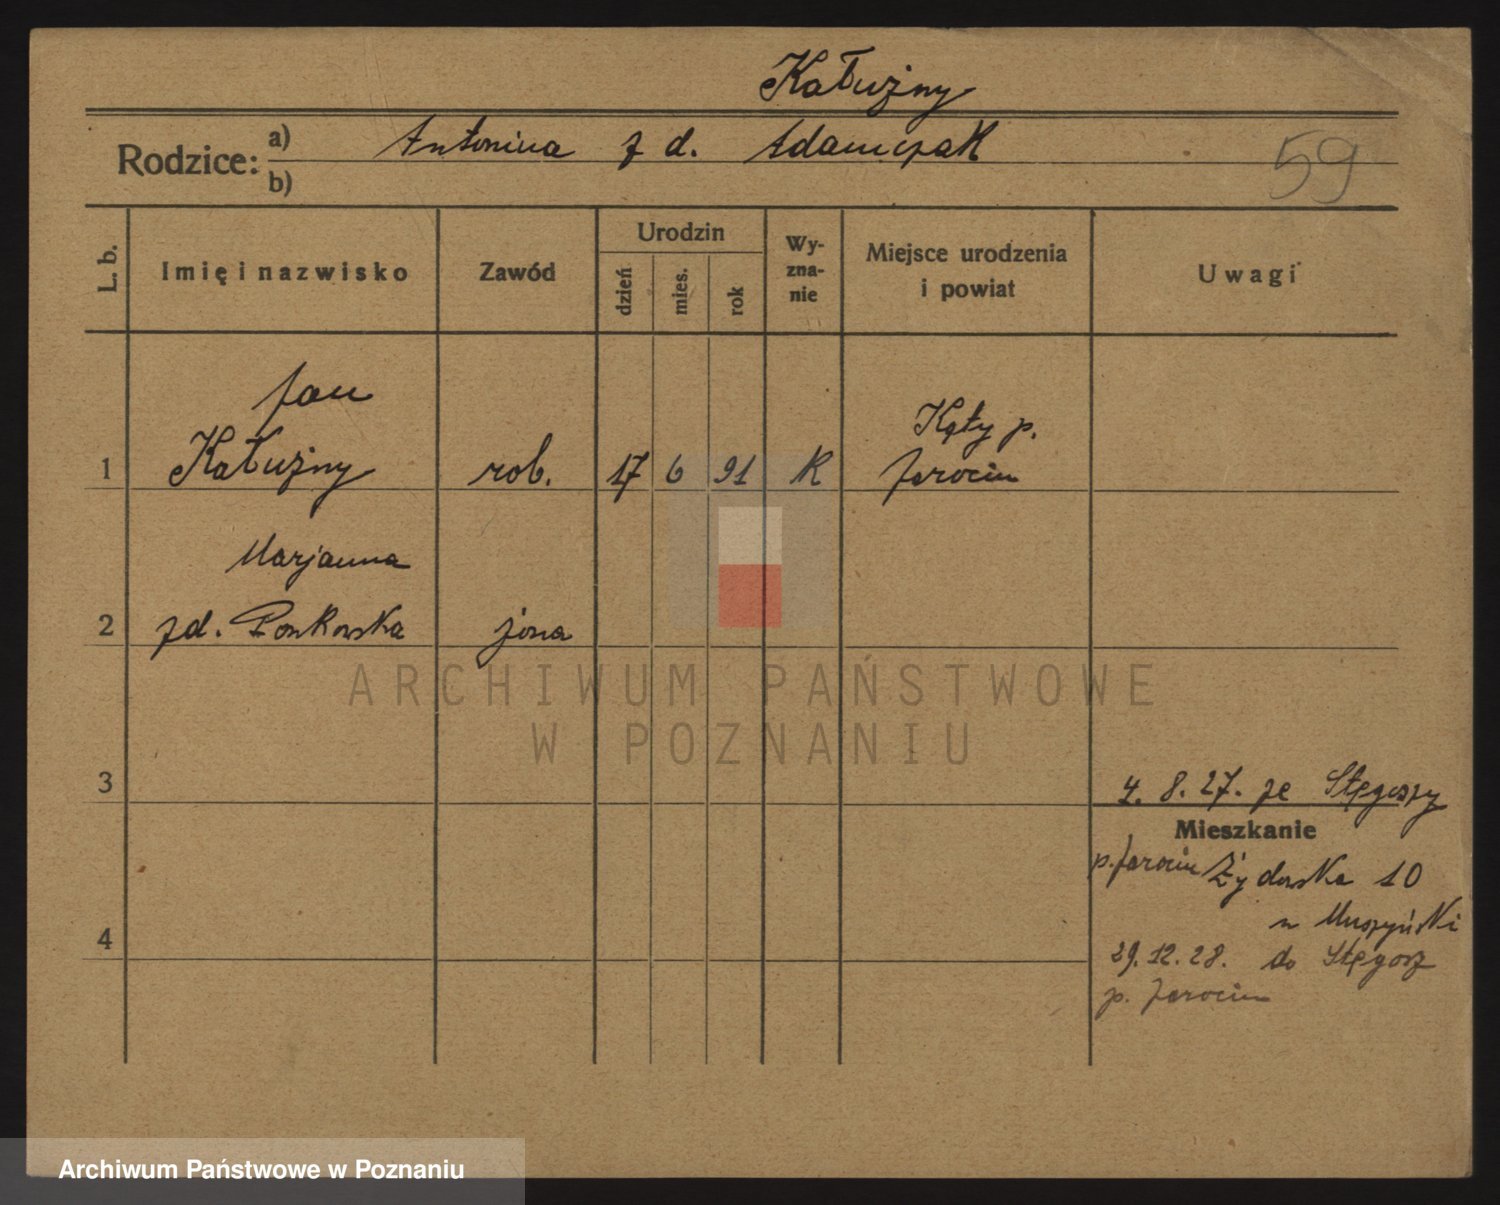 Kałużny
Rodzice: a) Antonina z d. Adamczak
b)
59
L. b.
Imię i nazwisko
Zawód
Urodzin
dzień
mies.
rok
Wy-
zna-
nie
Miejsce urodzenia
i powiat
Uwagi
Jan
1 Kałużny rob. 17 6 91 K
Kąty p.
Jarocin
Marjanna
2 zd. Ponkowska żona
ARCHIWUM PAŃSTWOWE
W POZNANIU
3
4. 8. 27. ze Stęgoszy
Mieszkanie
p. Jarocin Żydowska 10
u Muszyński
4
29. 12. 28. do Stęgosz
p. Jarocin
Archiwum Państwowe w Poznaniu